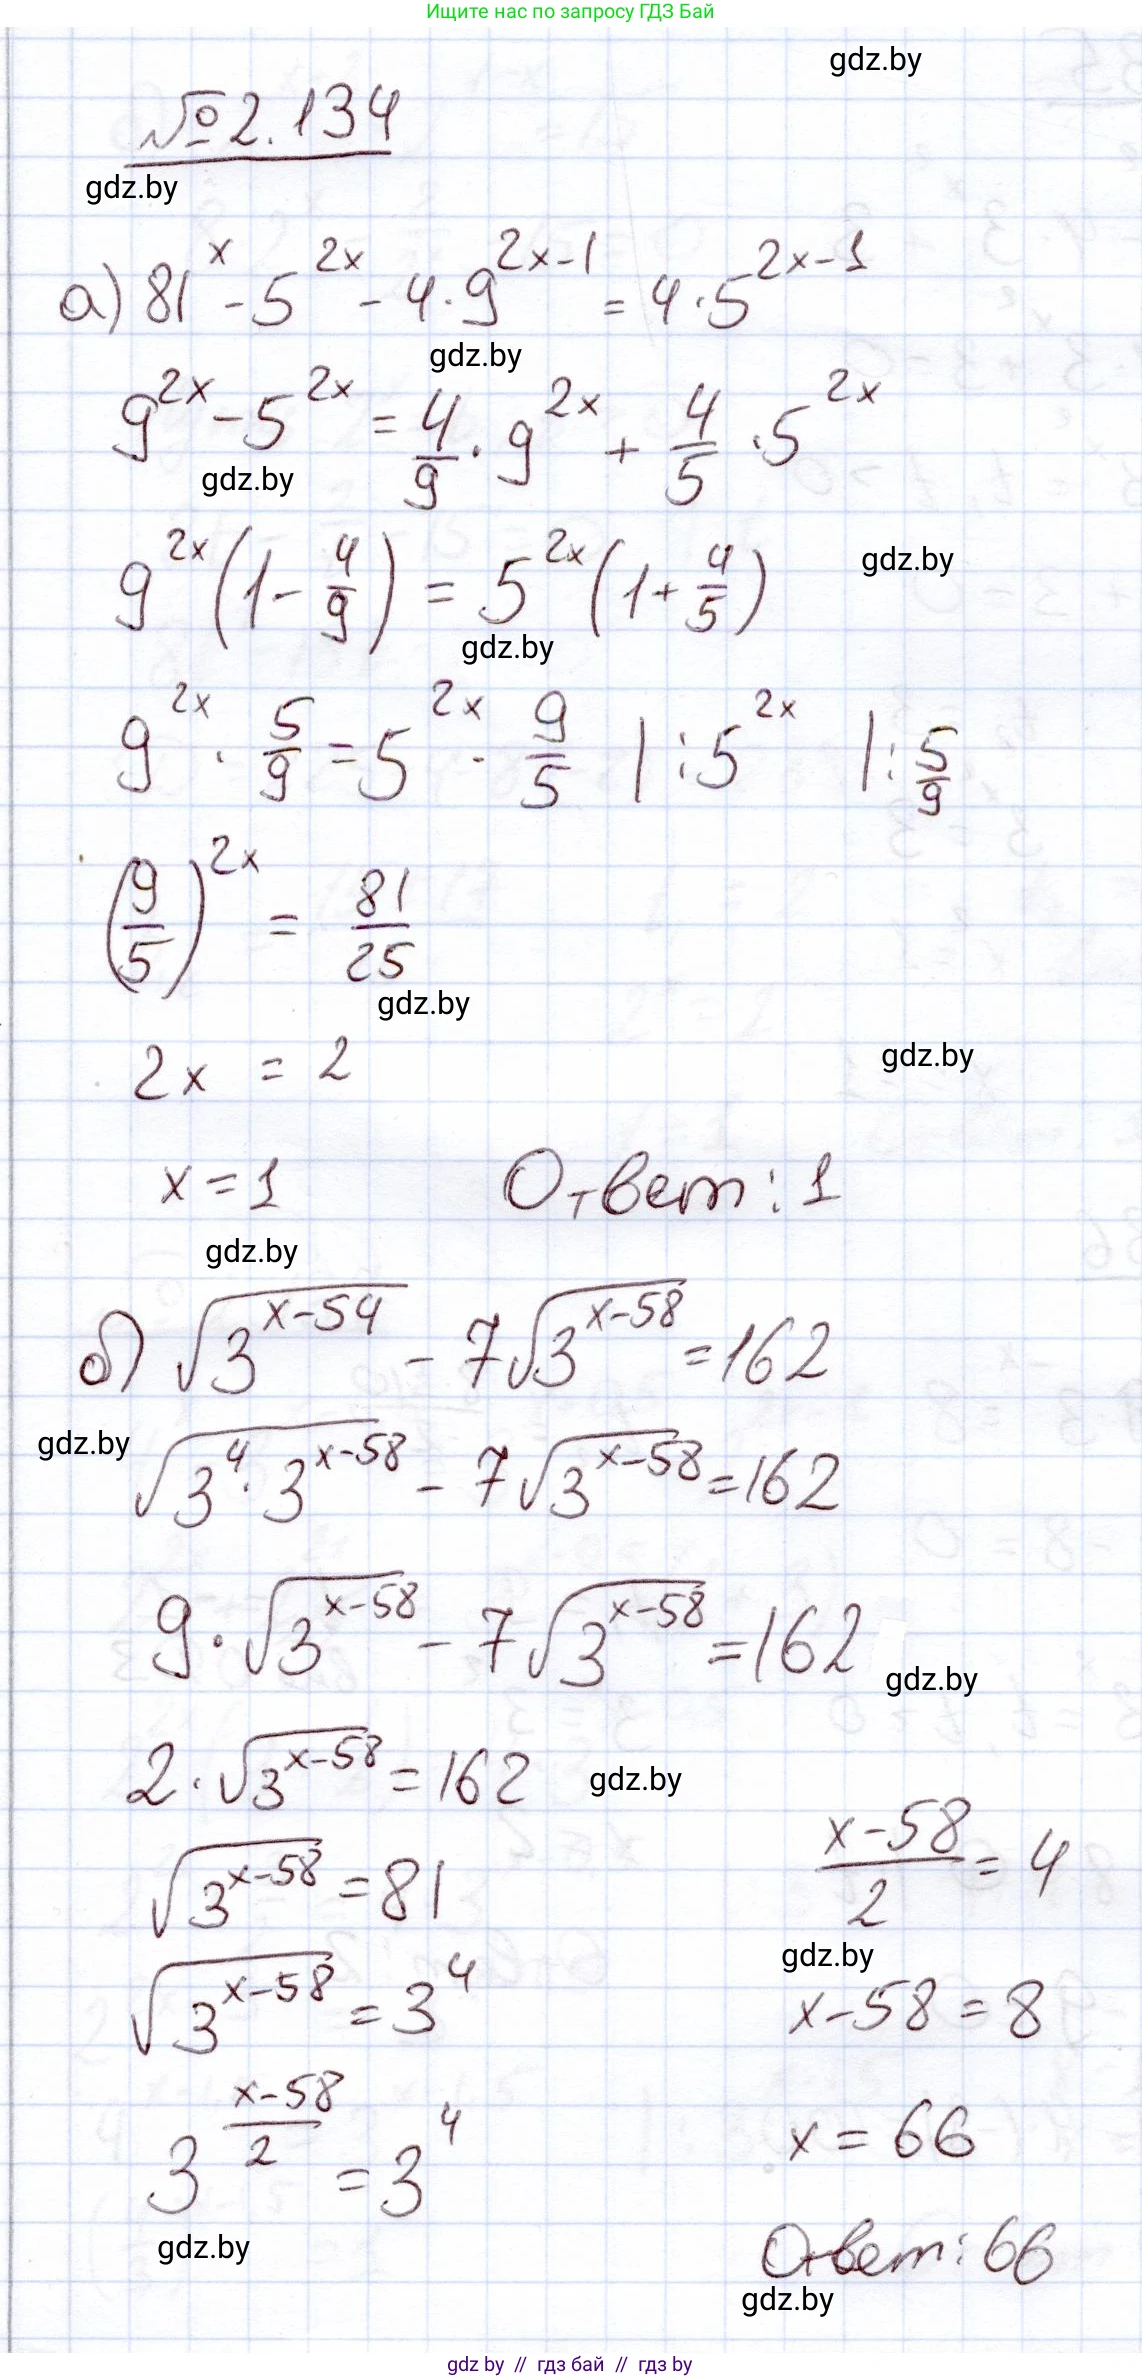 Ищите нас по запросу ГДЗ Бай
gdz.by
№2.134
gdz.by
а) 81^x - 5^{2x} - 4·9^{2x-1} = 4·5^{2x-1}
gdz.by
9^{2x} - 5^{2x} = 4/9 · 9^{2x} + 4/5 · 5^{2x}
gdz.by
9^{2x}(1 - 4/9) = 5^{2x}(1 + 4/5)
gdz.by
gdz.by
9^{2x} · 5/9 = 5^{2x} · 9/5 |:5^{2x} |:5/9
(9/5)^{2x} = 81/25
gdz.by
2x = 2
gdz.by
x = 1 Ответ: 1
gdz.by
б) √(3^{x-54}) - 7√(3^{x-58}) = 162
gdz.by
√(3^4·3^{x-58}) - 7√(3^{x-58}) = 162
9·√(3^{x-58}) - 7√(3^{x-58}) = 162
gdz.by
2·√(3^{x-58}) = 162
gdz.by
√(3^{x-58}) = 81
√(3^{x-58}) = 3^4
3^{(x-58)/2} = 3^4
gdz.by
(x-58)/2 = 4
gdz.by
x-58 = 8
x = 66
Ответ: 66
gdz.by
gdz by // гдз бай // гдз by